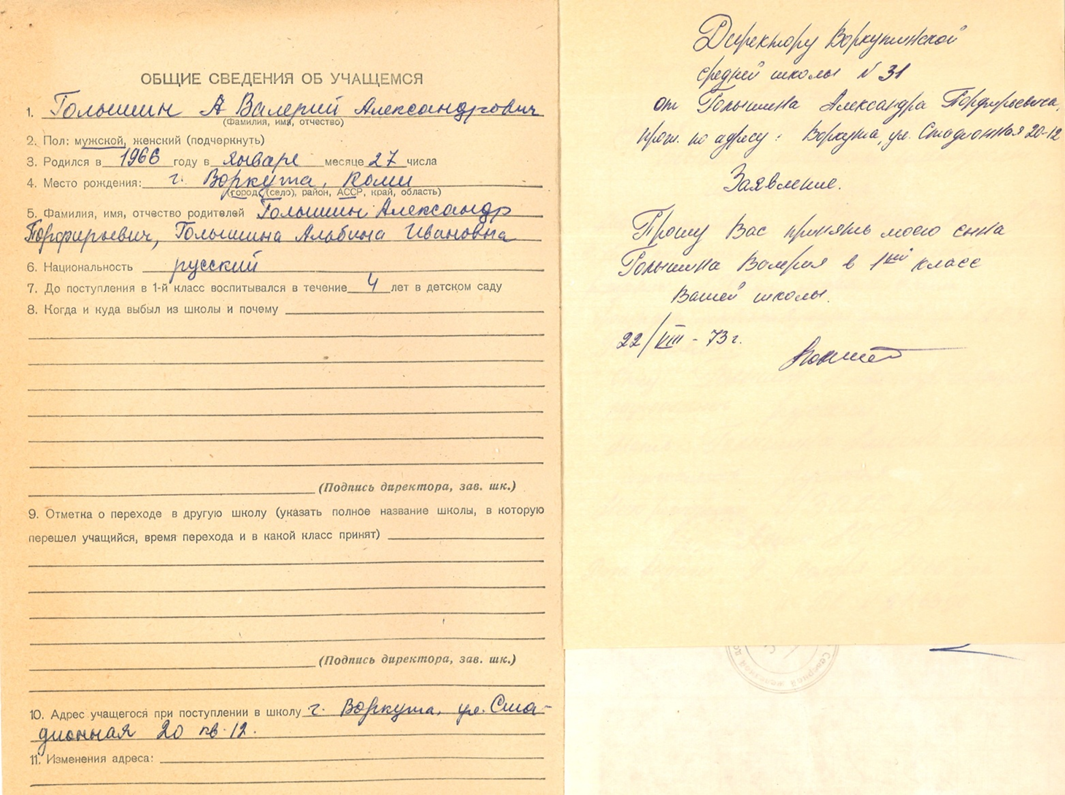 ОБЩИЕ СВЕДЕНИЯ ОБ УЧАЩЕМСЯ
1. Голышин А Валерий Александрович
(Фамилия, имя, отчество)
2. Пол: мужской, женский (подчеркнуть)
3. Родился в 1966 году в январе месяце 27 числа
4. Место рождения: г. Воркута, Коми
(город, (село), район, АССР, край, область)
5. Фамилия, имя, отчество родителей Голышин Александр
Порфирьевич, Голышина Альбина Ивановна
6. Национальность русский
7. До поступления в 1-й класс воспитывался в течение 4 лет в детском саду
8. Когда и куда выбыл из школы и почему
(Подпись директора, зав. шк.)
9. Отметка о переходе в другую школу (указать полное название школы, в которую
перешел учащийся, время перехода и в какой класс принят)
(Подпись директора, зав. шк.)
10. Адрес учащегося при поступлении в школу г. Воркута, ул. Ста-
дионная 20 кв. 12.
11. Изменения адреса:
Директору Воркутинской
средней школы N 31
от Голышина Александра Порфирьевича,
прож. по адресу: Воркута, ул. Стадионная 20-12
Заявление.
Прошу Вас принять моего сына
Голышина Валерия в 1ый класс
Вашей школы.
22/VIII - 73 г.